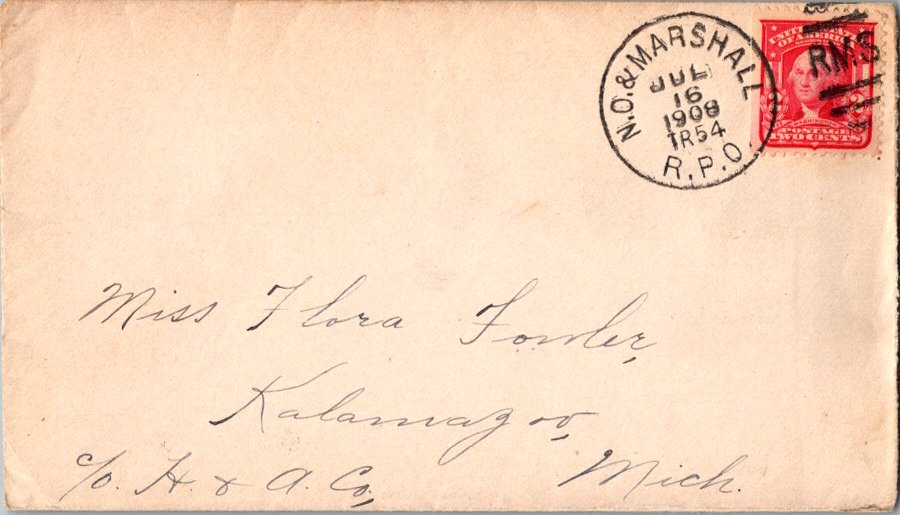 N.O. & MARSHALL
JUL
16
1908
TR54
R.P.O.
RMS
UNITED STATES
OF AMERICA
WASHINGTON
POSTAGE
TWO CENTS
Miss Flora Fowler,
Kalamazoo,
c/o. H. & A. Co., Mich.